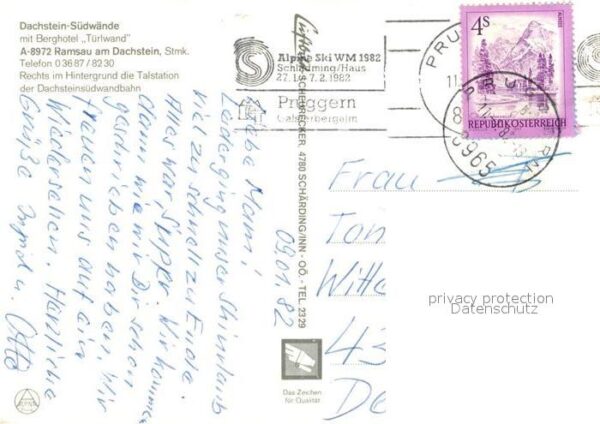 Dachstein-Südwände
mit Berghotel „Türlwand"
A-8972 Ramsau am Dachstein, Stmk.
Telefon 0 36 87 / 82 30
Rechts im Hintergrund die Talstation
der Dachsteinsüdwandbahn
Alpine Ski WM 1982
Schladming/Haus
27. 1.-7. 2. 1982
Pruggern
Galsterbergalm
4S
REPUBLIK ÖSTERREICH
8965
SCHÄRDING/INN - OÖ. - TEL. 2329
09.01.82
Liebe Mami!
Leider ging unser Skiurlaub
viel zu schnell zu Ende.
Alles war Super. Wir kommen
dann wie wir Dir schon
geschrieben haben. Wir
freuen uns auf ein
Wiedersehen. Herzliche
Grüße Ingrid u. Otto
Frau
Witte
43
De
privacy protection
Datenschutz
Das Zeichen
für Qualität